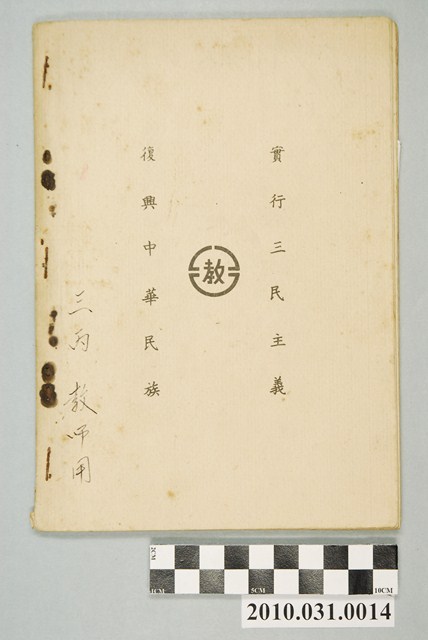 實行三民主義
教
復興中華民族
三丙 教师用
2CM
1CM
5CM
10CM
2010.031.0014